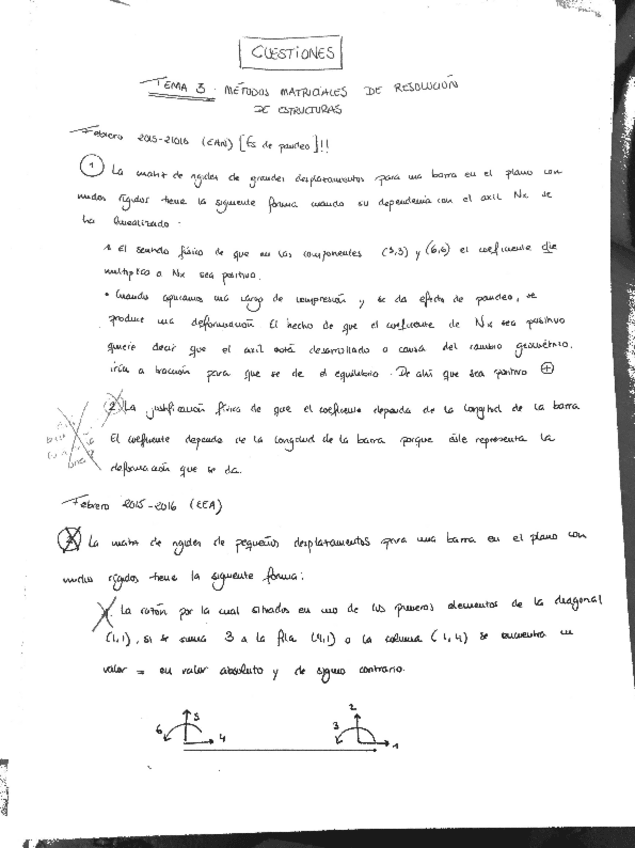 CUESTIONES
TEMA 3. MÉTODOS MATRICIALES DE RESOLUCIÓN
DE ESTRUCTURAS
Febrero 2015-21016 (EAN) [Es de pandeo]!!
1 La matriz de rigidez de grandes desplazamientos para una barra en el plano con
nudos rígidos tiene la siguiente forma cuando su dependencia con el axil Nx se
ha linealizado.
1. El sentido físico de que en las componentes (3,3) y (6,6) el coeficiente que
multiplica a Nx sea positivo.
• Cuando aplicamos una carga de compresión y se da efecto de pandeo, se
produce una deformación. El hecho de que el coeficiente de Nx sea positivo
quiere decir que el axil está desarrollado a causa del cambio geométrico.
iría a tracción para que se de el equilibrio. De ahí que sea positivo +
2 La justificación física de que el coeficiente dependa de la longitud de la barra
El coeficiente depende de la longitud de la barra porque éste representa la
deformación que se da.
Febrero 2015-2016 (EEA)
La matriz de rigidez de pequeños desplazamientos para una barra en el plano con
nudos rígidos tiene la siguiente forma:
1. La razón por la cual situados en uno de los primeros elementos de la diagonal
(1,1), si se suma 3 a la fila (4,1) o la columna (1,4) se encuentra un
valor = en valor absoluto y de signo contrario.
6 5 4 3 2 1